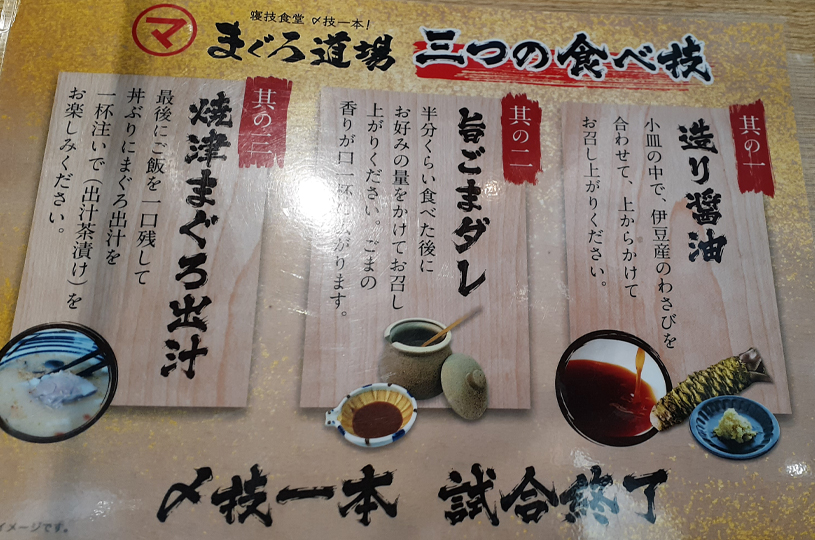 マ
寝技食堂 〆技一本!
まぐろ道場 三つの食べ技
其の一
造り醤油
小皿の中で、伊豆産のわさびを
合わせて、上からかけて
お召し上がりください。
其の二
旨ごまダレ
半分くらい食べた後に
お好みの量をかけてお召し
上がりください。ごまの
香りが口一杯に広がります。
其の三
焼津まぐろ出汁
最後にご飯を一口残して
丼ぶりにまぐろ出汁を
一杯注いで(出汁茶漬け)を
お楽しみください。
〆技一本 試合終了
イメージです。